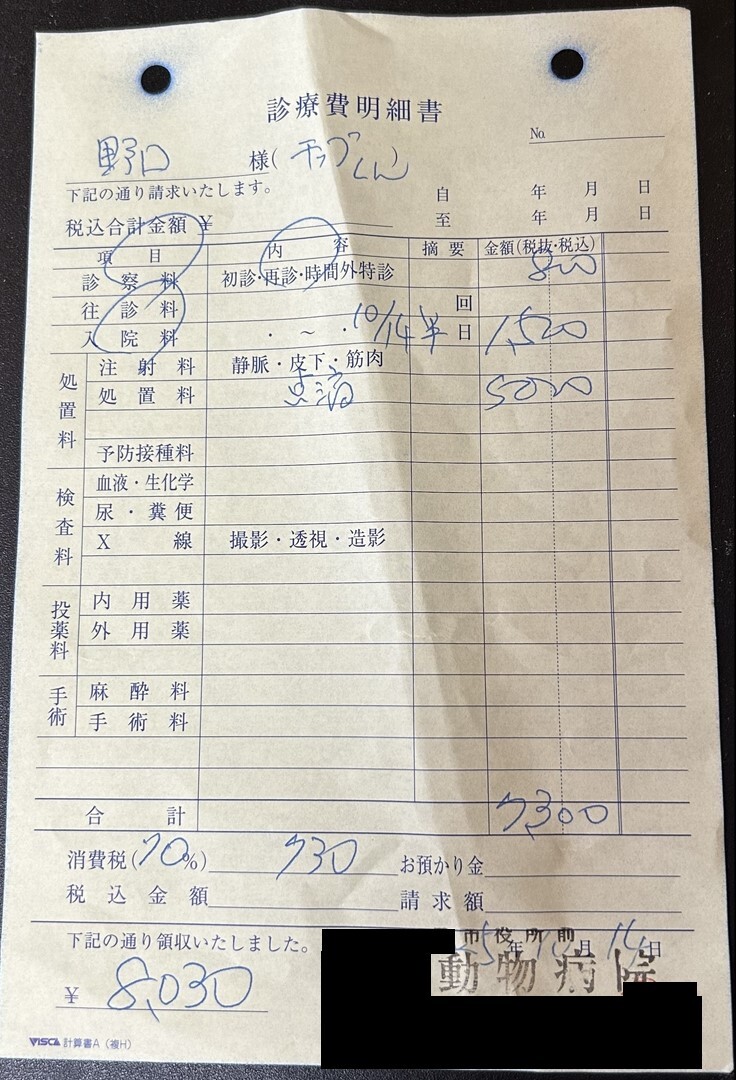 診療費明細書
No.
野口 様(チップくん)
下記の通り請求いたします。
自 年 月 日
税込合計金額 ¥
至 年 月 日
項目 内容 摘要 金額(税抜・税込)
診察料 初診・再診・時間外特診 800
往診料 回
入院料 ・ ～ ・ 10/14半 日 1,520
処置料
注射料 静脈・皮下・筋肉
処置料 点滴 5000
予防接種料
検査料
血液・生化学
尿・糞便
X線 撮影・透視・造影
投薬料
内用薬
外用薬
手術
麻酔料
手術料
合計 7,300
消費税(10%) 730 お預かり金
税込金額 請求額
下記の通り領収いたしました。
年 月 14日
市役所前
動物病院
¥ 8,030
VISCA 計算書A (複H)